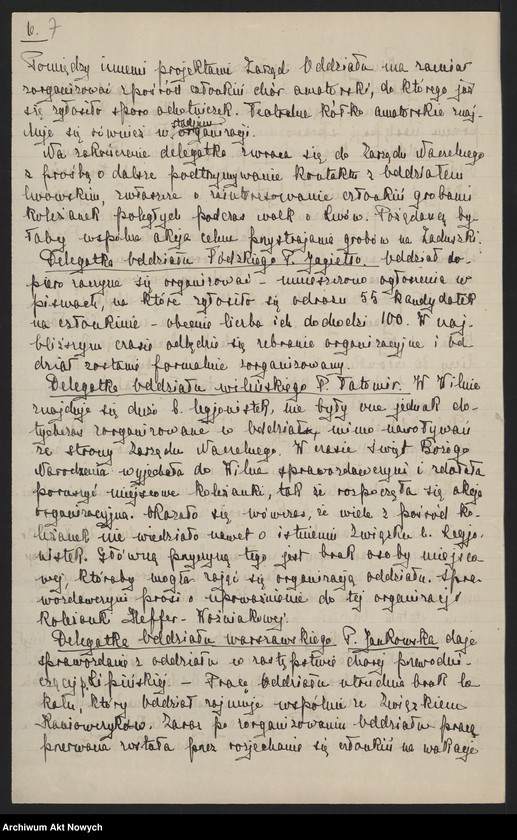 6. 7
Pomiędzy innemi projektami Zarząd Oddziału ma zamiar
zorganizować z pośród członkiń chór amatorski, do którego już
się zgłosiło sporo ochotniczek. Teatralne kółko amatorskie znaj-
duje się również w stadjum organizacji.
Na zakończenie delegatka zwraca się do Zarządu Naczelnego
z prośbą o dalsze podtrzymywanie kontaktu z oddziałem
lwowskim, zwłaszcza o zainteresowanie członkiń grobami
koleżanek poległych podczas walk o Lwów. Pożądaną by-
łaby wspólna akcja celem przystrajania grobów na Zaduszki.
Delegatka Oddziału Łódzkiego P. Jagiełło. Oddział do-
piero zaczyna się organizować - umieszczono ogłoszenie w
pismach, na które zgłosiło się odrazu 55 kandydatek
na członkinie - obecnie liczba ich dochodzi 100. W naj-
bliższym czasie odbędzie się zebranie organizacyjne i od
dział zostanie formalnie zorganizowany.
Delegatka Oddziału wileńskiego P. Tatomir. W Wilnie
znajduje się dużo b. legjonistek, nie były one jednak do-
tychczas zorganizowane w oddziale, mimo nawoływań
ze strony Zarządu Naczelnego. W czasie Świąt Bożego
Narodzenia wyjechała do Wilna sprawozdawczyni i zdołała
poruszyć miejscowe koleżanki, tak że rozpoczęła się akcja
organizacyjna. Okazało się wówczas, że wiele z pośród ko-
leżanek nie wiedziało nawet o istnieniu Związku b. Legjo-
nistek. Główną przyczyną tego jest brak osoby miejsco-
wej, któraby mogła zająć się organizacją oddziału. Spra-
wozdawczyni prosi o upoważnienie do tej organizacji
koleżanki Woźniakowej.
Delegatka Oddziału warszawskiego P. Jankowska daje
sprawozdanie z oddziału w zastępstwie chorej przewodni-
czącej p. Lipińskiej - Pracę Oddziału utrudnia brak lo
kalu, który oddział zajmuje wspólnie ze Związkiem
Kaniowczyków. Zaraz po zorganizowaniu Oddziału praca
przerwana została przez rozjechanie się członkiń na wakacje
Archiwum Akt Nowych